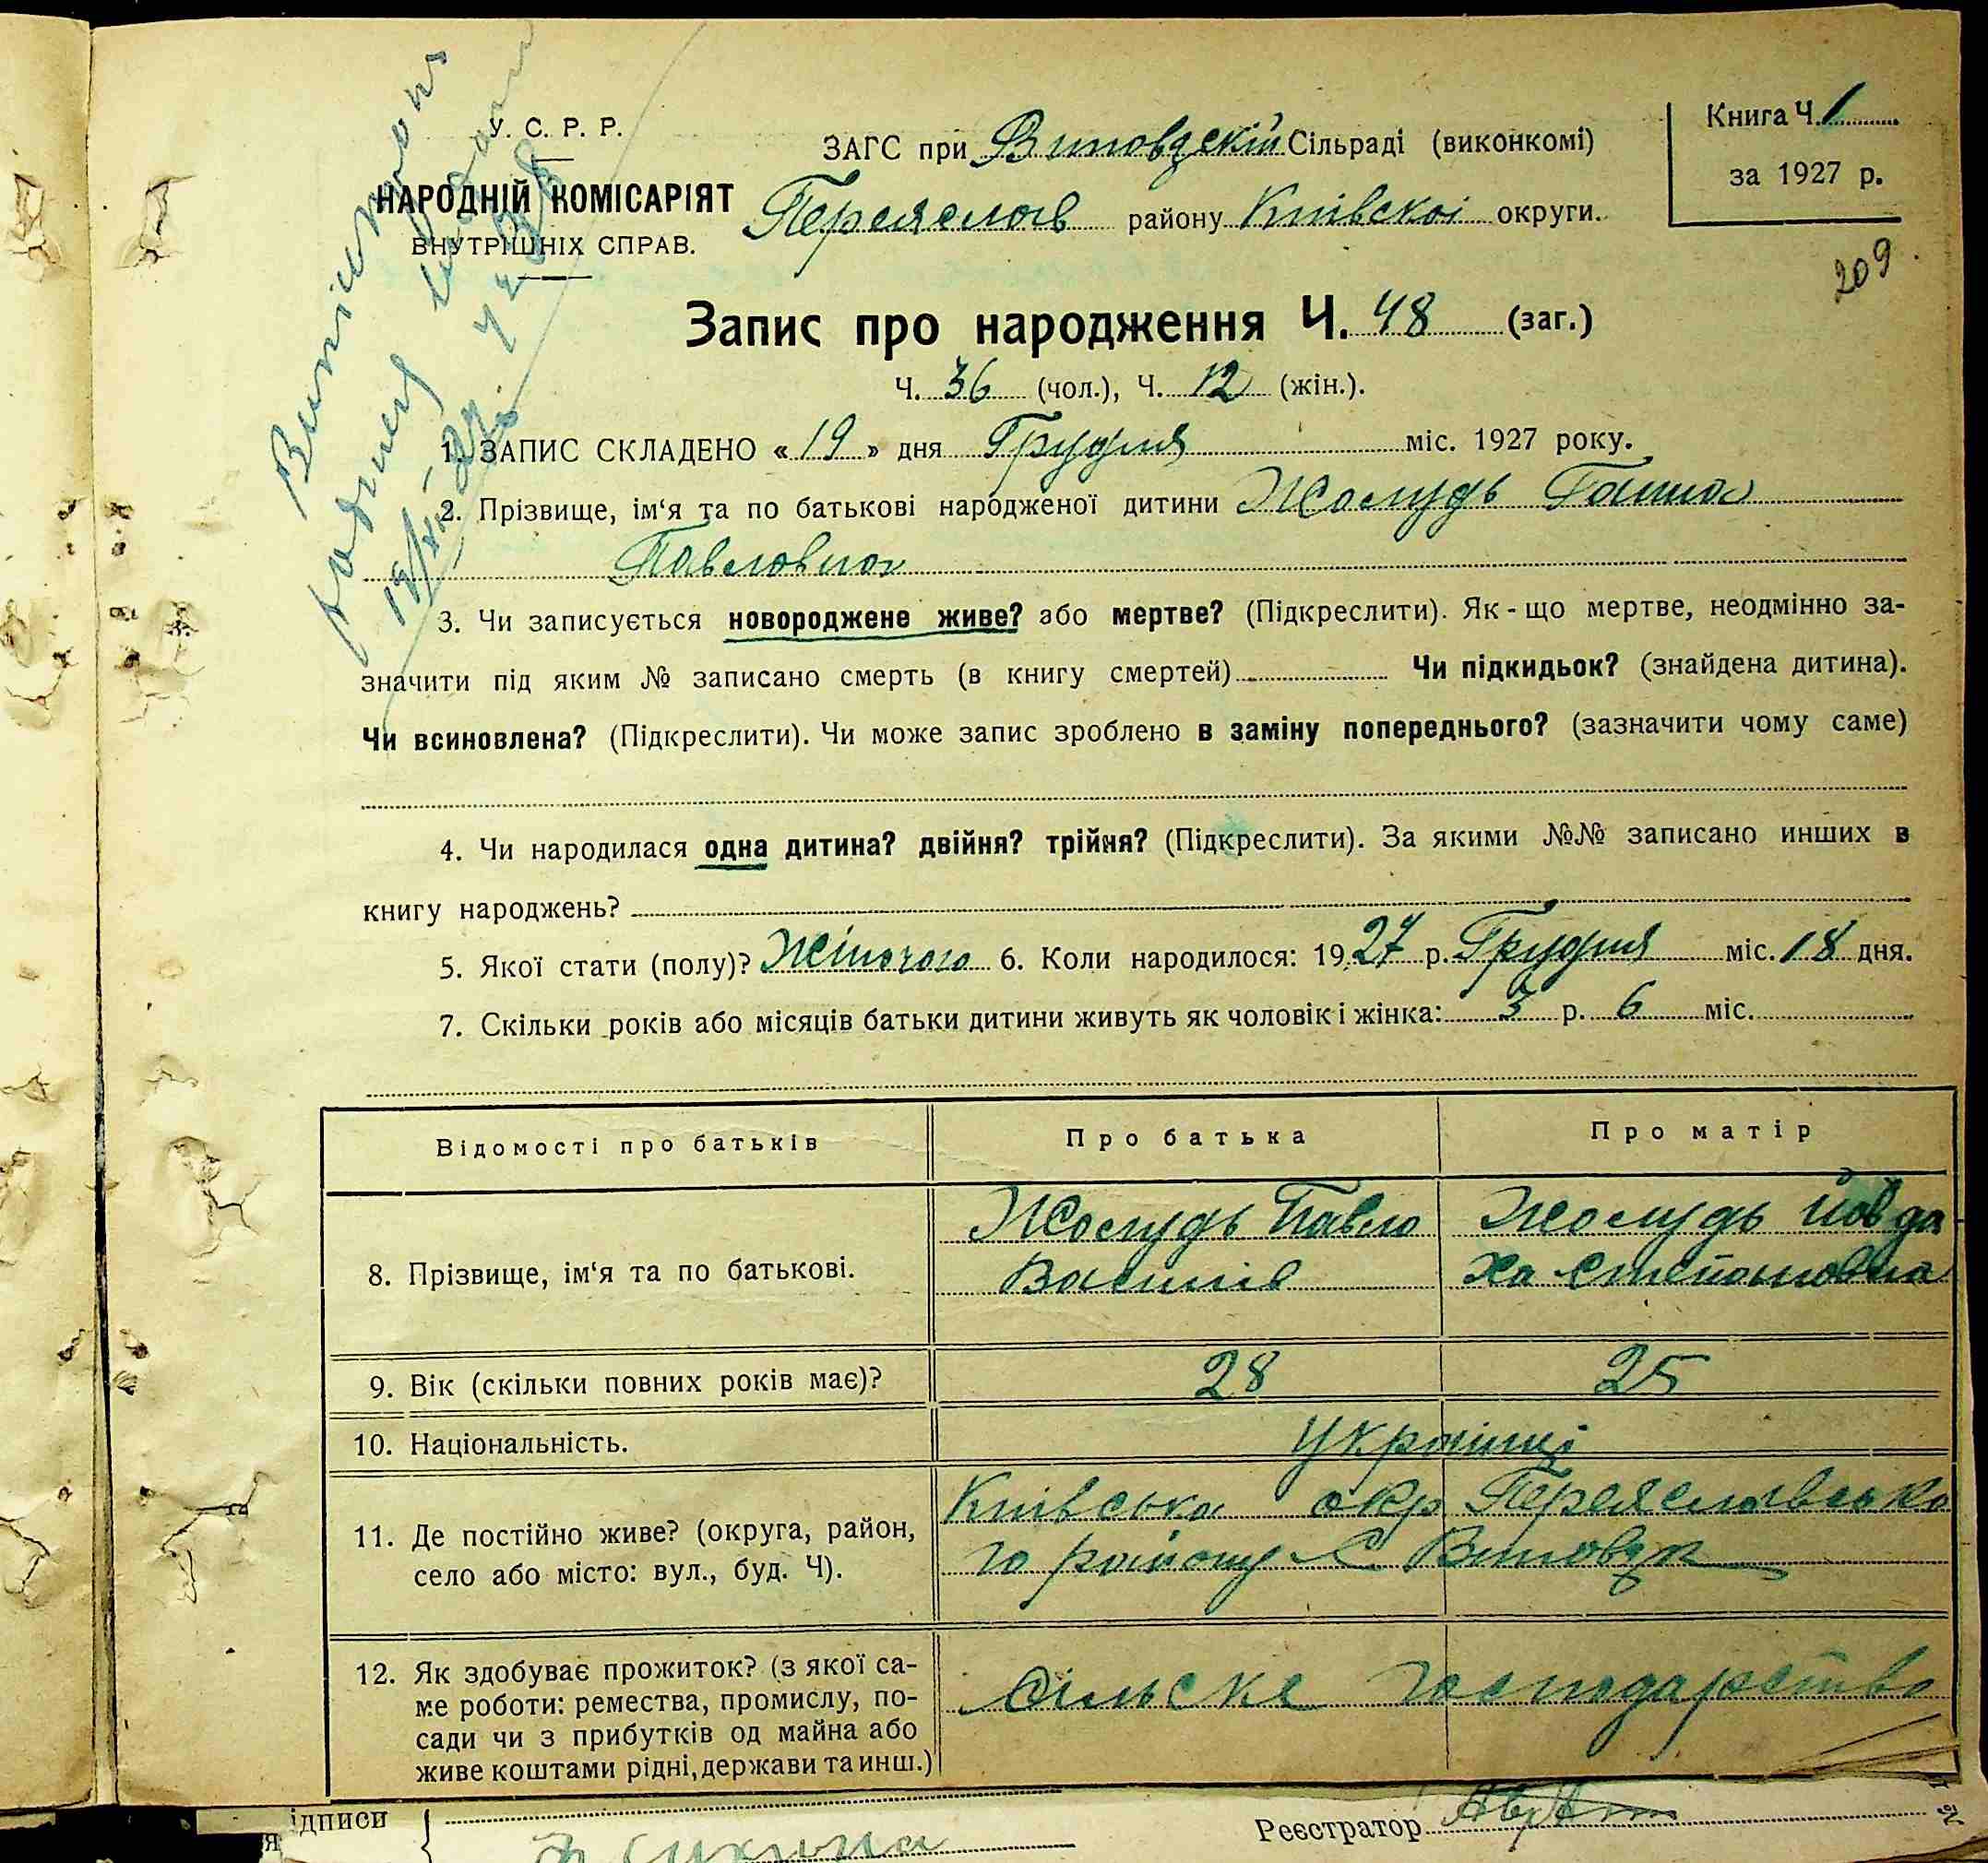 У. С. Р. Р.
НАРОДНІЙ КОМІСАРІЯТ
ВНУТРІШНІХ СПРАВ.
ЗАГС при Виповзскій Сільраді (виконкомі)
Переяслав району Київскоі округи.
Книга Ч. 1
за 1927 р.
209
Запис про народження Ч. 48 (заг.)
Ч. 36 (чол.), Ч. 12 (жін.).
1. ЗАПИС СКЛАДЕНО «19» дня Грудня міс. 1927 року.
2. Прізвище, ім‘я та по батькові народженої дитини Жолудь Ганна
Павловна
3. Чи записується новороджене живе? або мертве? (Підкреслити). Як-що мертве, неодмінно за-
значити під яким № записано смерть (в книгу смертей) Чи підкидьок? (знайдена дитина).
Чи всиновлена? (Підкреслити). Чи може запис зроблено в заміну попереднього? (зазначити чому саме)
4. Чи народилася одна дитина? двійня? трійня? (Підкреслити). За якими №№ записано инших в
книгу народжень?
5. Якої стати (полу)? Жіночого 6. Коли народилося: 1927 р. Грудня міс. 18 дня.
7. Скільки років або місяців батьки дитини живуть як чоловік і жінка: 3 р. 6 міс.
Відомості про батьків Про батька Про матір
8. Прізвище, ім‘я та по батькові.
Жолудь Павло
Василів
Жолудь Йовда
ха Степановна
9. Вік (скільки повних років має)? 28 25
10. Національність. Українці
11. Де постійно живе? (округа, район,
село або місто: вул., буд. Ч).
Київська окр Переяславсько
го району С Виповзк
12. Як здобуває прожиток? (з якої са-
ме роботи: ремества, промислу, по-
сади чи з прибутків од майна або
живе коштами рідні, держави та инш.)
Сільске господарство
ідписи
Реєстратор